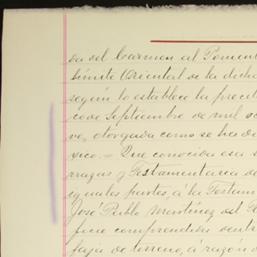 da del Carmen al Ponien
límite Oriental de la dicha
segun lo establece la precit
co de Septiembre de mil oc
ve, otorgada como se ha di
xico.— Que conocida esa
y Testamentaria de
iguales partes, á la Testam
José Pablo Martínez del
ficie comprendida dentr
faja de terreno, á razón d